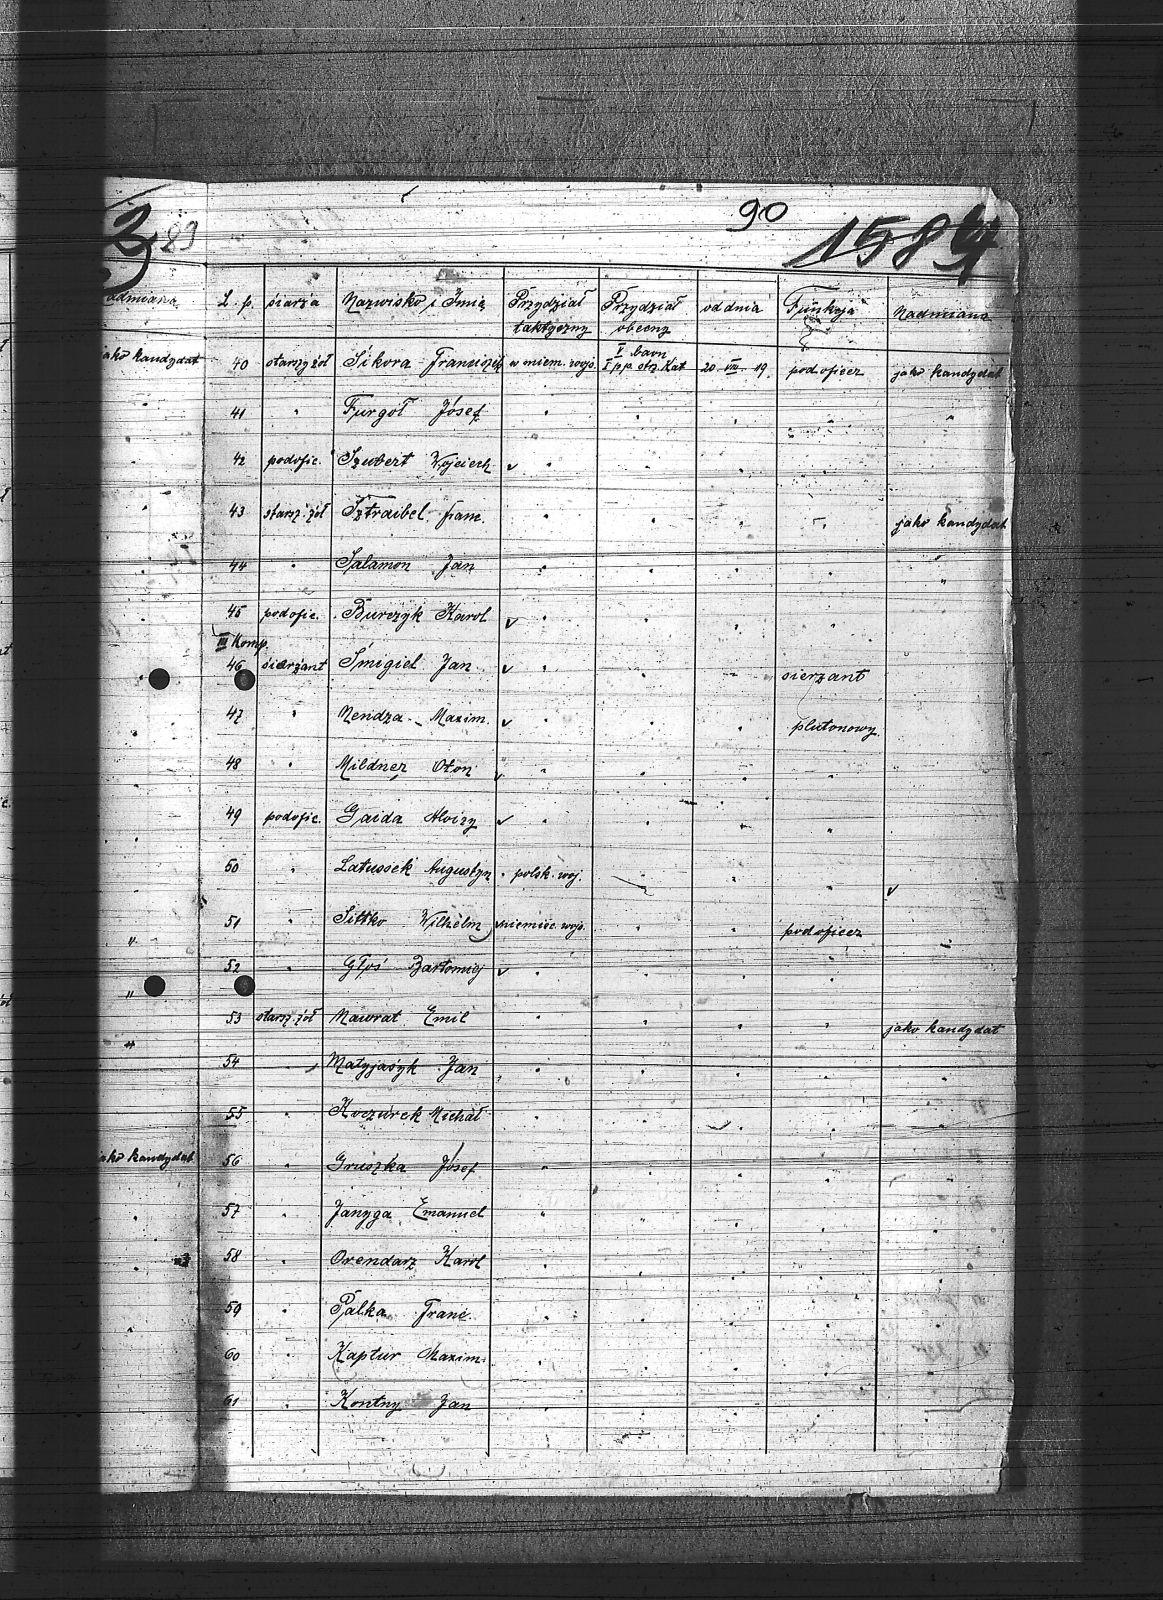 83
90
L. p. siarża Nazwisko i Imię Przydział taktyczny Przydział obecny od dnia Funkcja Nadmiana
jako kandydat
40 starszy żoł Sikora Franciszek w niem. wojs. V baon I p.p. strz. Kat 20 VIII 19. podoficer jako kandydat
41 " Furgoł Józef " " " " "
42 podofic. Szubert Wojciech " " " "
43 starsz. żoł Sztraibel Franc. " " " " jako kandydat
44 " Salamon Jan " " " " "
45 podofic. Burczyk Karol " " " "
III Komp.
46 sierżant Śmigiel Jan " " " sierżant
47 " Nendza Maxim. " " " plutonowy
48 " Mildner Oton " " " "
49 podofic. Gaida Aloizy " " " "
50 " Latussek Augustyn polsk. woj. " " "
51 " Sittko Wilhelm niemiec. wojs. " " podoficer
52 " Głoś Bartomiej " " " "
53 starsz. żoł Nawrat Emil " " " " jako kandydat
54 " Matyjaśyk Jan " " " " "
55 " Koczurek Michał " " "
jako kandydat
56 " Gruszka Józef " " " " "
57 " Janyga Emanuel " " " " "
58 " Orendarz Karol " " " " "
59 " Palka Franc. " " " " "
60 " Kaptur Maxim. " " " " "
61 " Kontny Jan " " " "